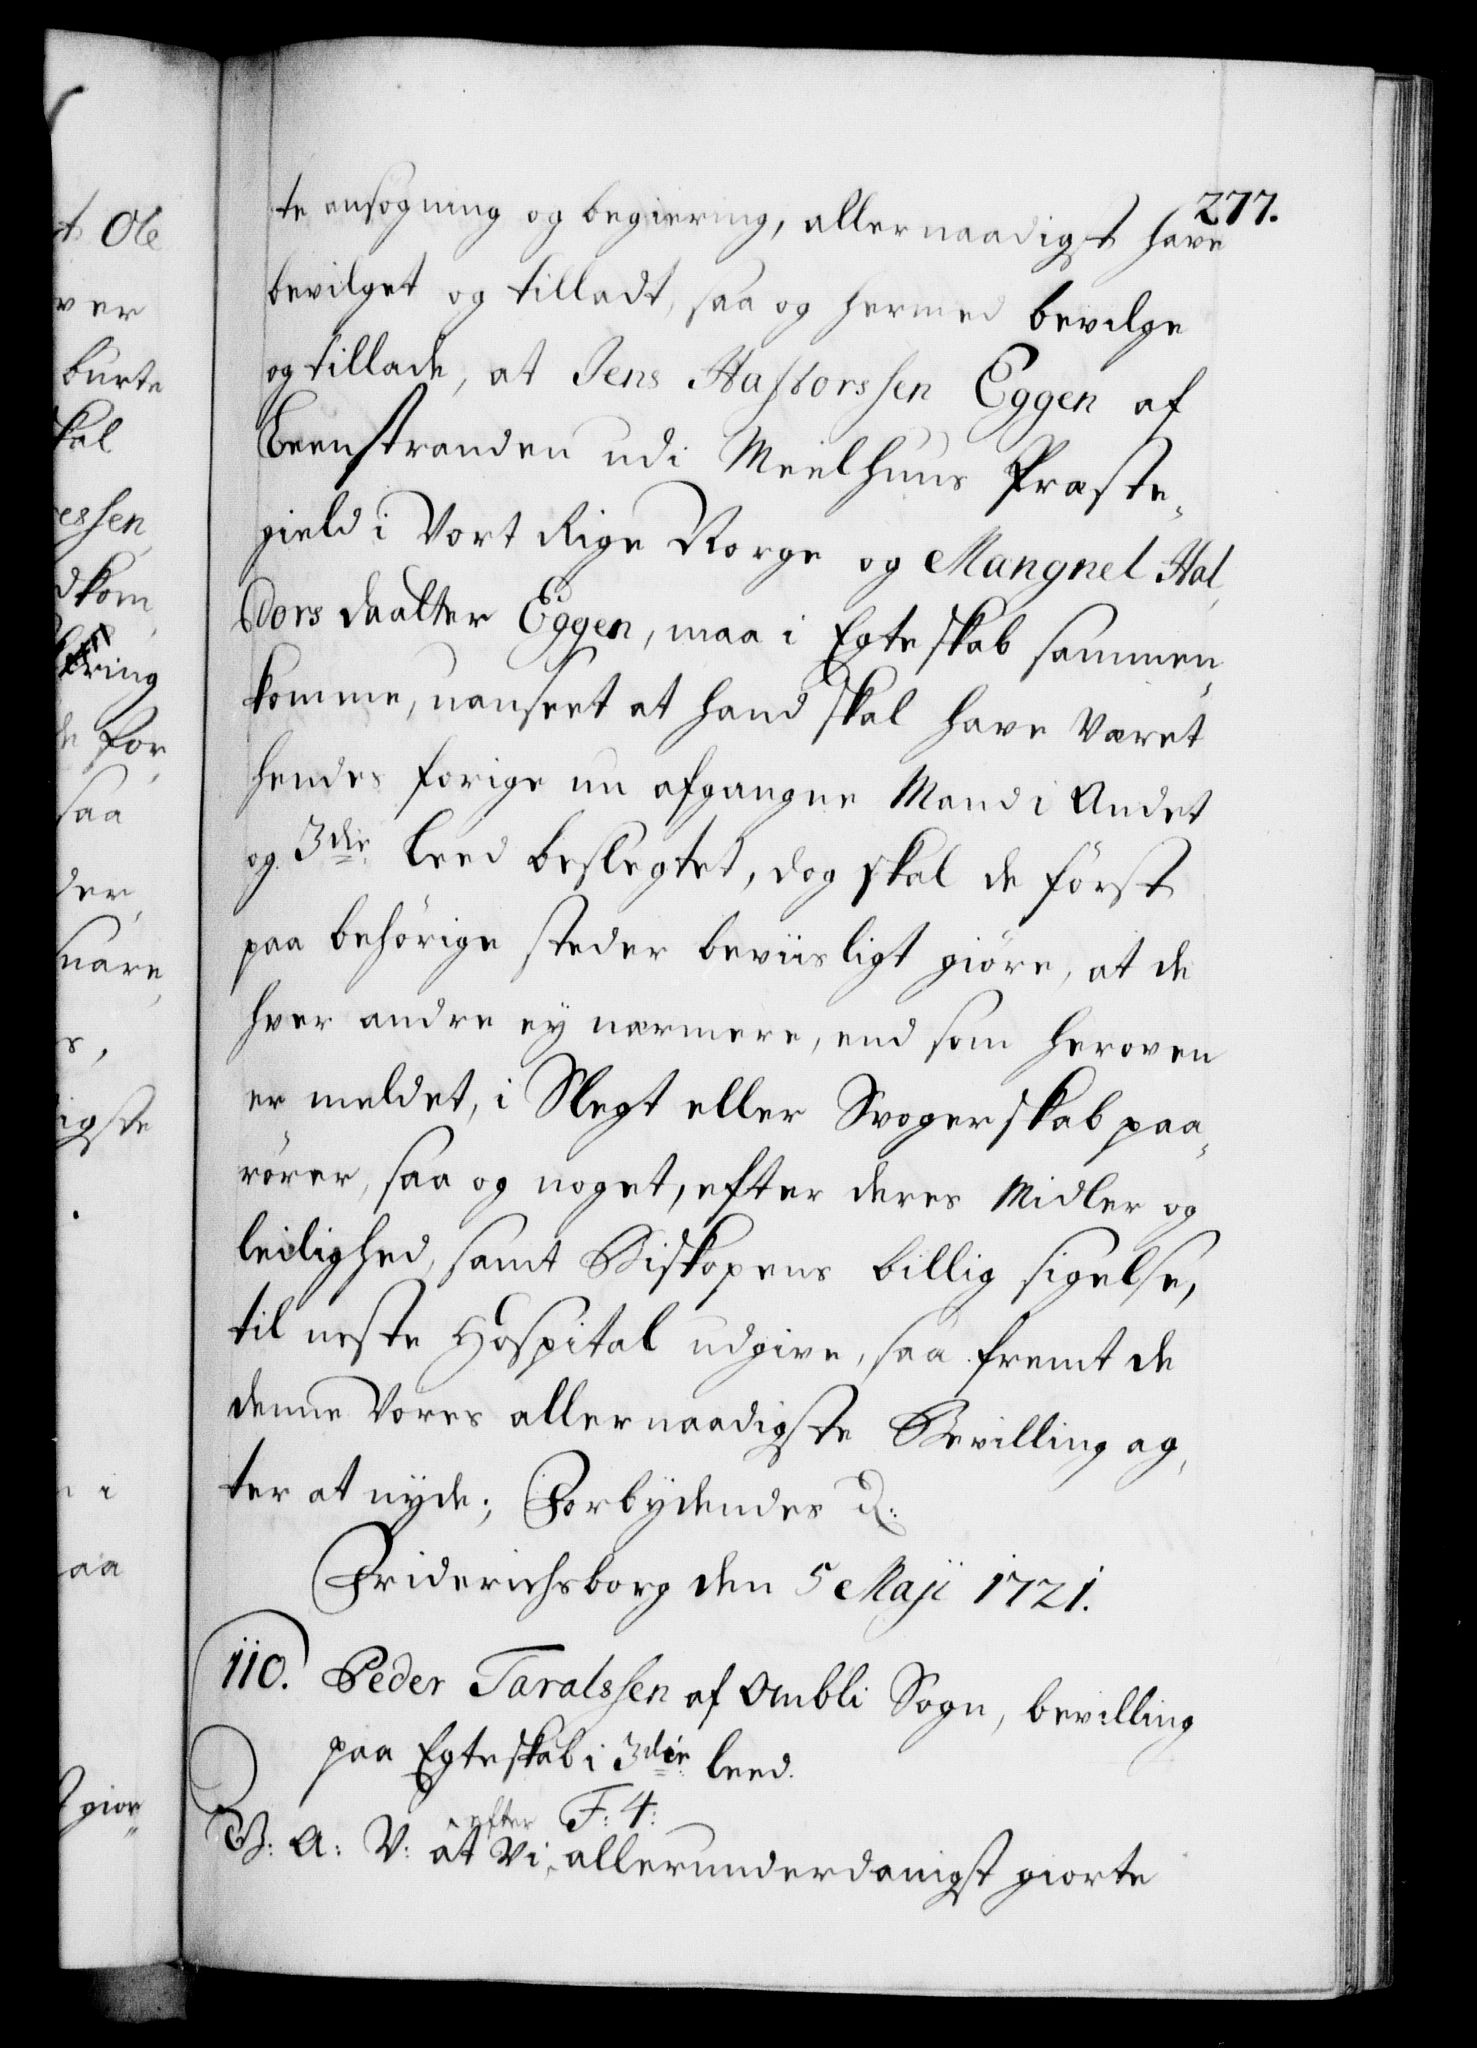 277.
te ansøgning og begiering, allernaadigst have
bevilget og tilladt, saa og hermed bevilge
og tillade, at Jens Hastorssen Eggen af
Leenstranden udi Meelhuus Præste„
gield i Vort Rige Norge og Mangnel Hal„
dors daatter Eggen, maa i Egteskab sammen„
komme, uanseet at hand skal have været
hendes forige nu afgangne Mand i Andet
og 3die leed beslegtet, dog skal de først
paa behørige steder beviisligt giøre, at de
hver andre ey nærmere, end som heroven
er meldet, i Slegt eller Svogerskab paa„
rører, saa og noget, efter deres Midler og
leilighed, samt Biskopens billig sigelse,
til neste Hospital udgive, saa fremt de
denne Vores allernaadigste Bevilling ag„
ter at nyde; Forbydendes &:
Friderichsborg den 5 Maji 1721.
110. Peder Taralssen af Ombli Sogn, bevilling
paa Egteskab i 3die leed.
F: 4:
V: A: V: at Vi, efter allerunderdanigst giorte
t Ole
ver
burte
skal
essen,
dkom„
ring
for„
saa
der„
nære,
s,
igste
i
aa
gior„